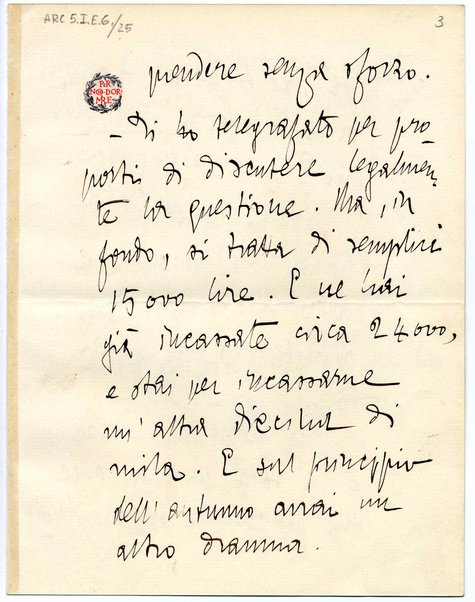 ARC 5.I.E.6./25
3
PER
NON DOR
MIRE
prendere senza sforzo.
– Ti ho telegrafato per pro
porti di discutere legalmen-
te la questione. Ma, in
fondo, si tratta di semplici
15000 lire. E ne hai
già incassate circa 24000,
e stai per incassarne
un'altra diecina di
mila. E sul principio
dell'autunno avrai un
altro dramma.